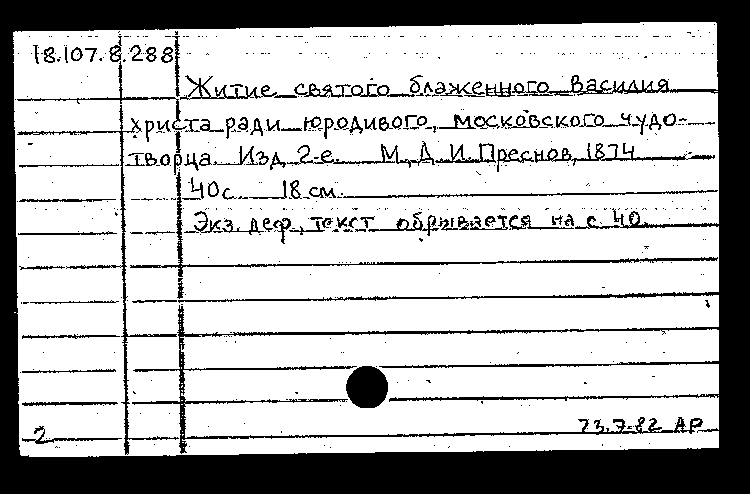 18.107.8.288
Житие святого блаженного Василия
христа ради юродивого, московского чудо-
творца. Изд. 2-е. М., Д. И. Преснов, 1874
40 с. 18 см.
Экз. деф., текст обрывается на с. 40.
2
73.7-82 АР